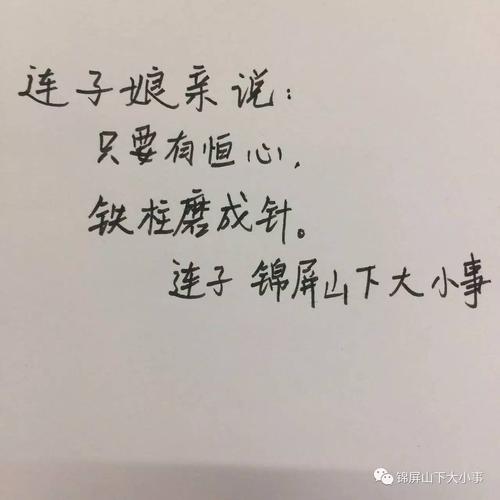 连子娘亲说：
只要有恒心，
铁柱磨成针。
连子 锦屏山下大小事
锦屏山下大小事